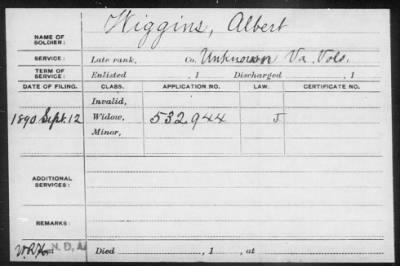 NAME OF SOLDIER: Wiggins, Albert
SERVICE: Late rank, Co. Unknown Va. Vols.
TERM OF SERVICE: Enlisted , 1 Discharged , 1
DATE OF FILING. CLASS. APPLICATION NO. LAW. CERTIFICATE NO.
Invalid,
1890 Sept. 12 Widow, 532944 J
Minor,
ADDITIONAL SERVICES:
REMARKS:
N. D. A.
Died , 1 , at